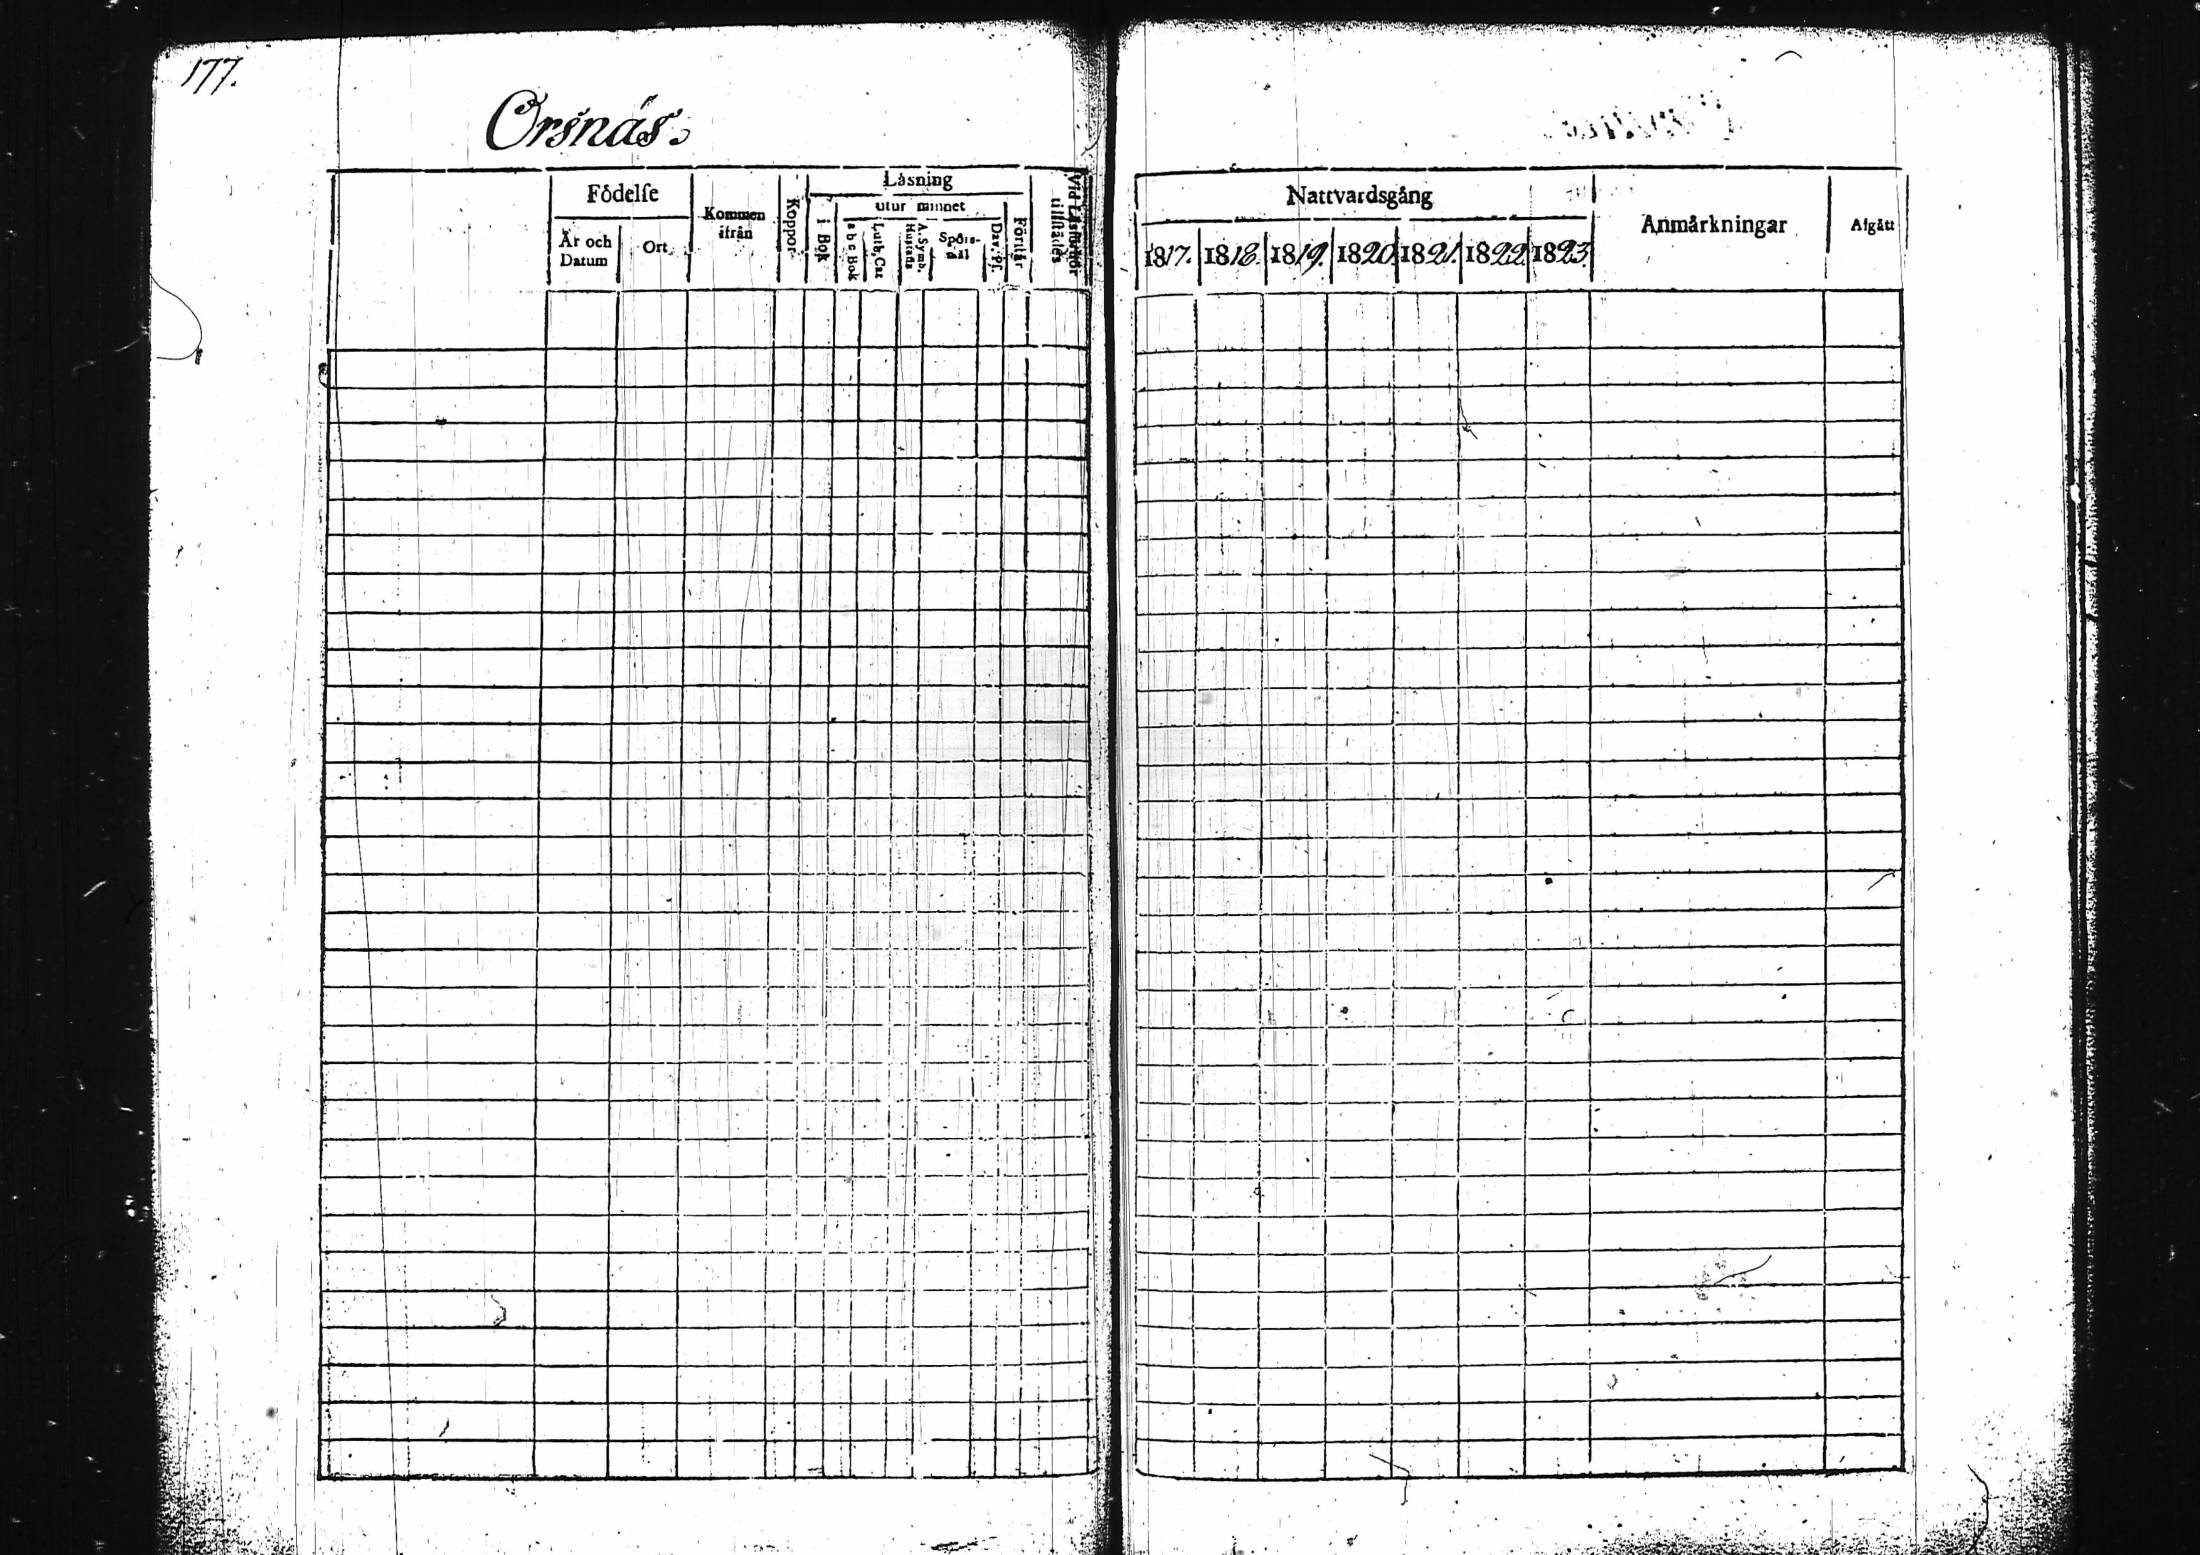 177.
Orsnäs.
Födelse
År och Datum
Ort
Kommen ifrån
Koppor
Läsning
i Bok
utur minnet
a b c Bok
Luth. Cat.
A. Symb. Hustafla
Spörs-mål
Dav. Ps.
Förstår
Vid Läsförhör tillstädes
Nattvardsgång
1817. 1818. 1819. 1820. 1821. 1822. 1823.
Anmärkningar
Afgått